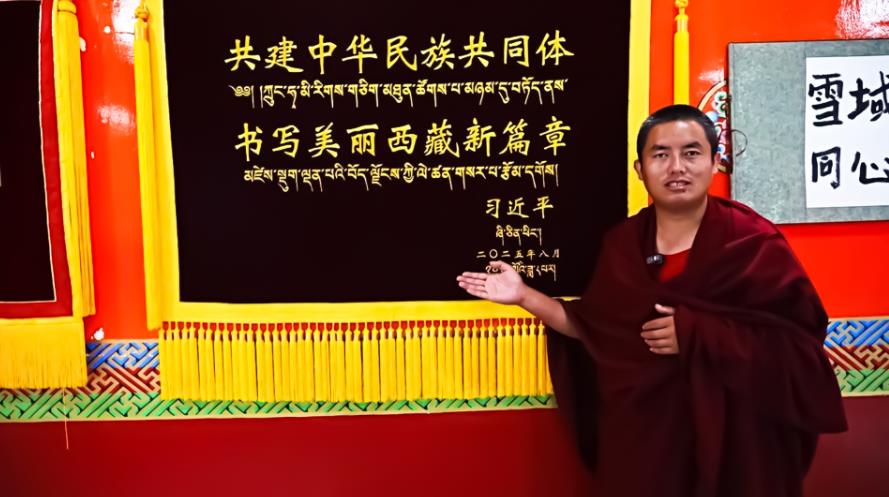 共建中华民族共同体
༄༅། །ཀྲུང་ཧྭ་མི་རིགས་གཅིག་མཐུན་ཚོགས་པ་མཉམ་དུ་བཏོད་ནས་
书写美丽西藏新篇章
མཛེས་སྡུག་ལྡན་པའི་བོད་ལྗོངས་ཀྱི་ལེ་ཚན་གསར་པ་རྩོམ་དགོས།
习近平
ཞི་ཅིན་ཕིང་།
二〇二五年八月
雪域
同心